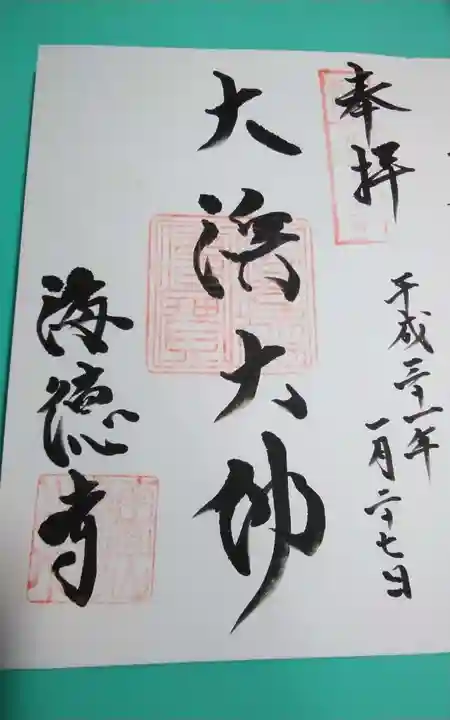 奉拝
平成三十一年
一月二十七日
大浜大佛
海徳寺